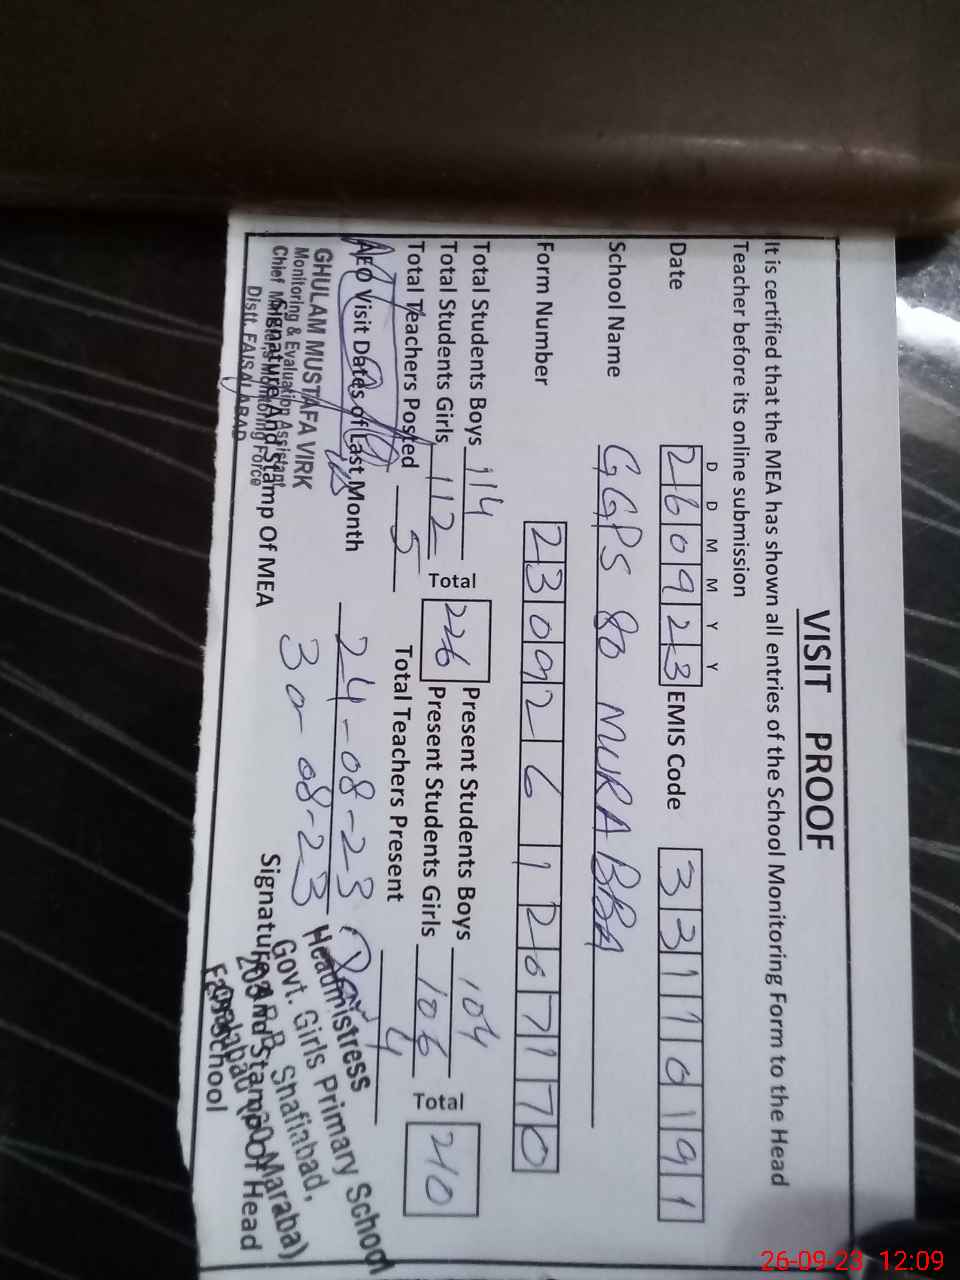 VISIT PROOF
It is certified that the MEA has shown all entries of the School Monitoring Form to the Head
Teacher before its online submission
D D M M Y Y
Date 260923 EMIS Code 33110191
School Name GGPS 80 MURABBA
Form Number 2309261207170
Total Students Boys 114 Present Students Boys 104
Total Students Girls 112 Total 226 Present Students Girls 106 Total 210
Total Teachers Posted 5 Total Teachers Present 4
AEO Visit Dates of Last Month 24-08-23
30-08-23
GHULAM MUSTAFA VIRK
Monitoring & Evaluation Assistant
Chief Minister's Monitoring Force
Distt. FAISALABAD
Signature And Stamp Of MEA
Headmistress
Govt. Girls Primary School
Shafiabad,
Maraba)
Signature And Stamp Of Head
School
26-09-23 12:09